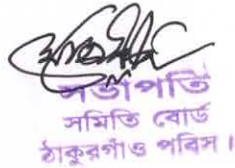 সভাপতি
সমিতি বোর্ড
ঠাকুরগাঁও পবিস ।